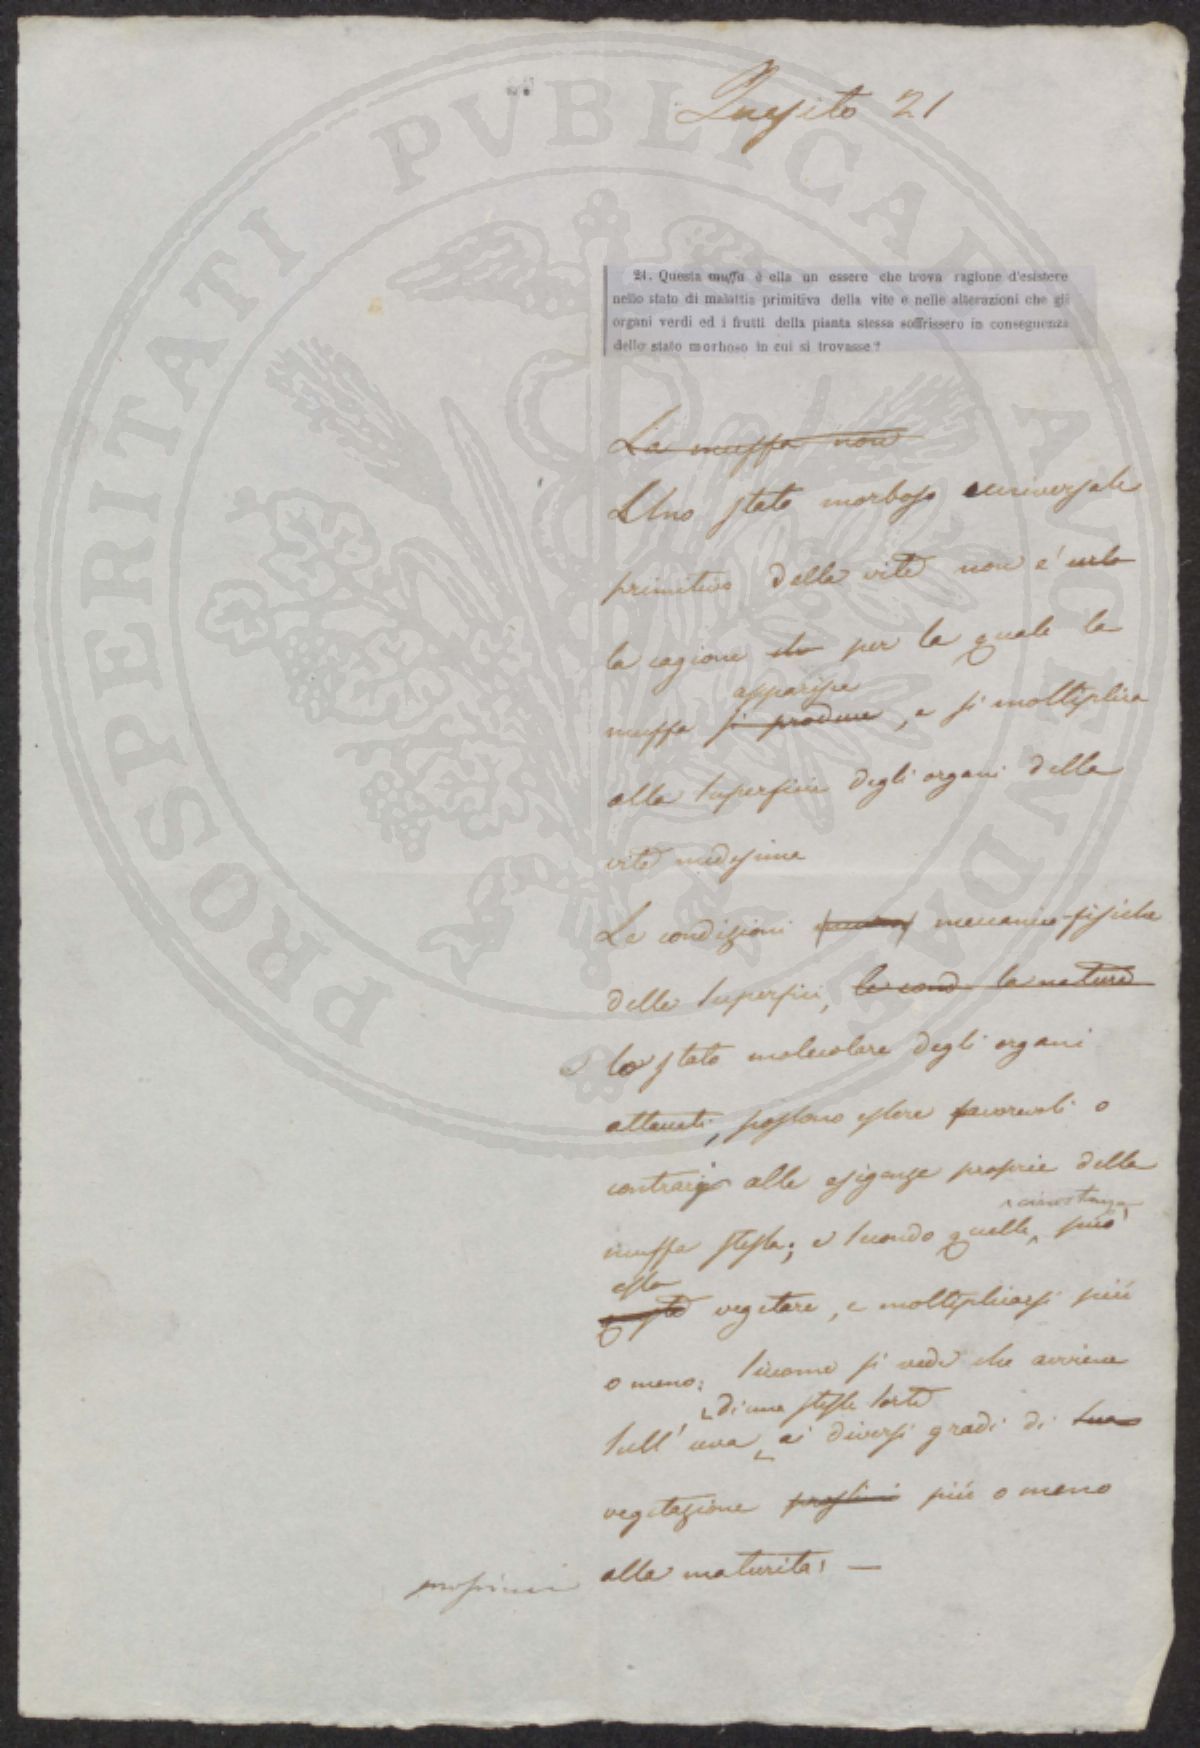 Quesito 21
21. Questa muffa è ella un essere che trova ragione d'esistere
nello stato di malattia primitiva della vite e nelle alterazioni che gli
organi verdi ed i frutti della pianta stessa soffrissero in conseguenza
dello stato morboso in cui si trovasse?
La muffa non
Uno stato morboso universale
primitivo della vite non è
la cagione che per la quale la
apparisce
muffa si produce, e si moltiplica
alla superficie degli organi della
vite medesima
Le condizioni meccanico-fisiche
delle superfici, le cond la natura
lo stato molecolare degli organi
attaccati, possono essere favorevoli o
contrarj alle esigenze proprie della
circostanze
muffa stessa; e secondo quelle, può
essa
questa vegetare, e moltiplicarsi più
o meno; siccome si vede che avviene
di una stessa sorte
sull'uva ai diversi gradi di sua
vegetazione prossimi più o meno
prossimi alla maturità! —
PROSPERITATI PVBLICAE AVGENDAE